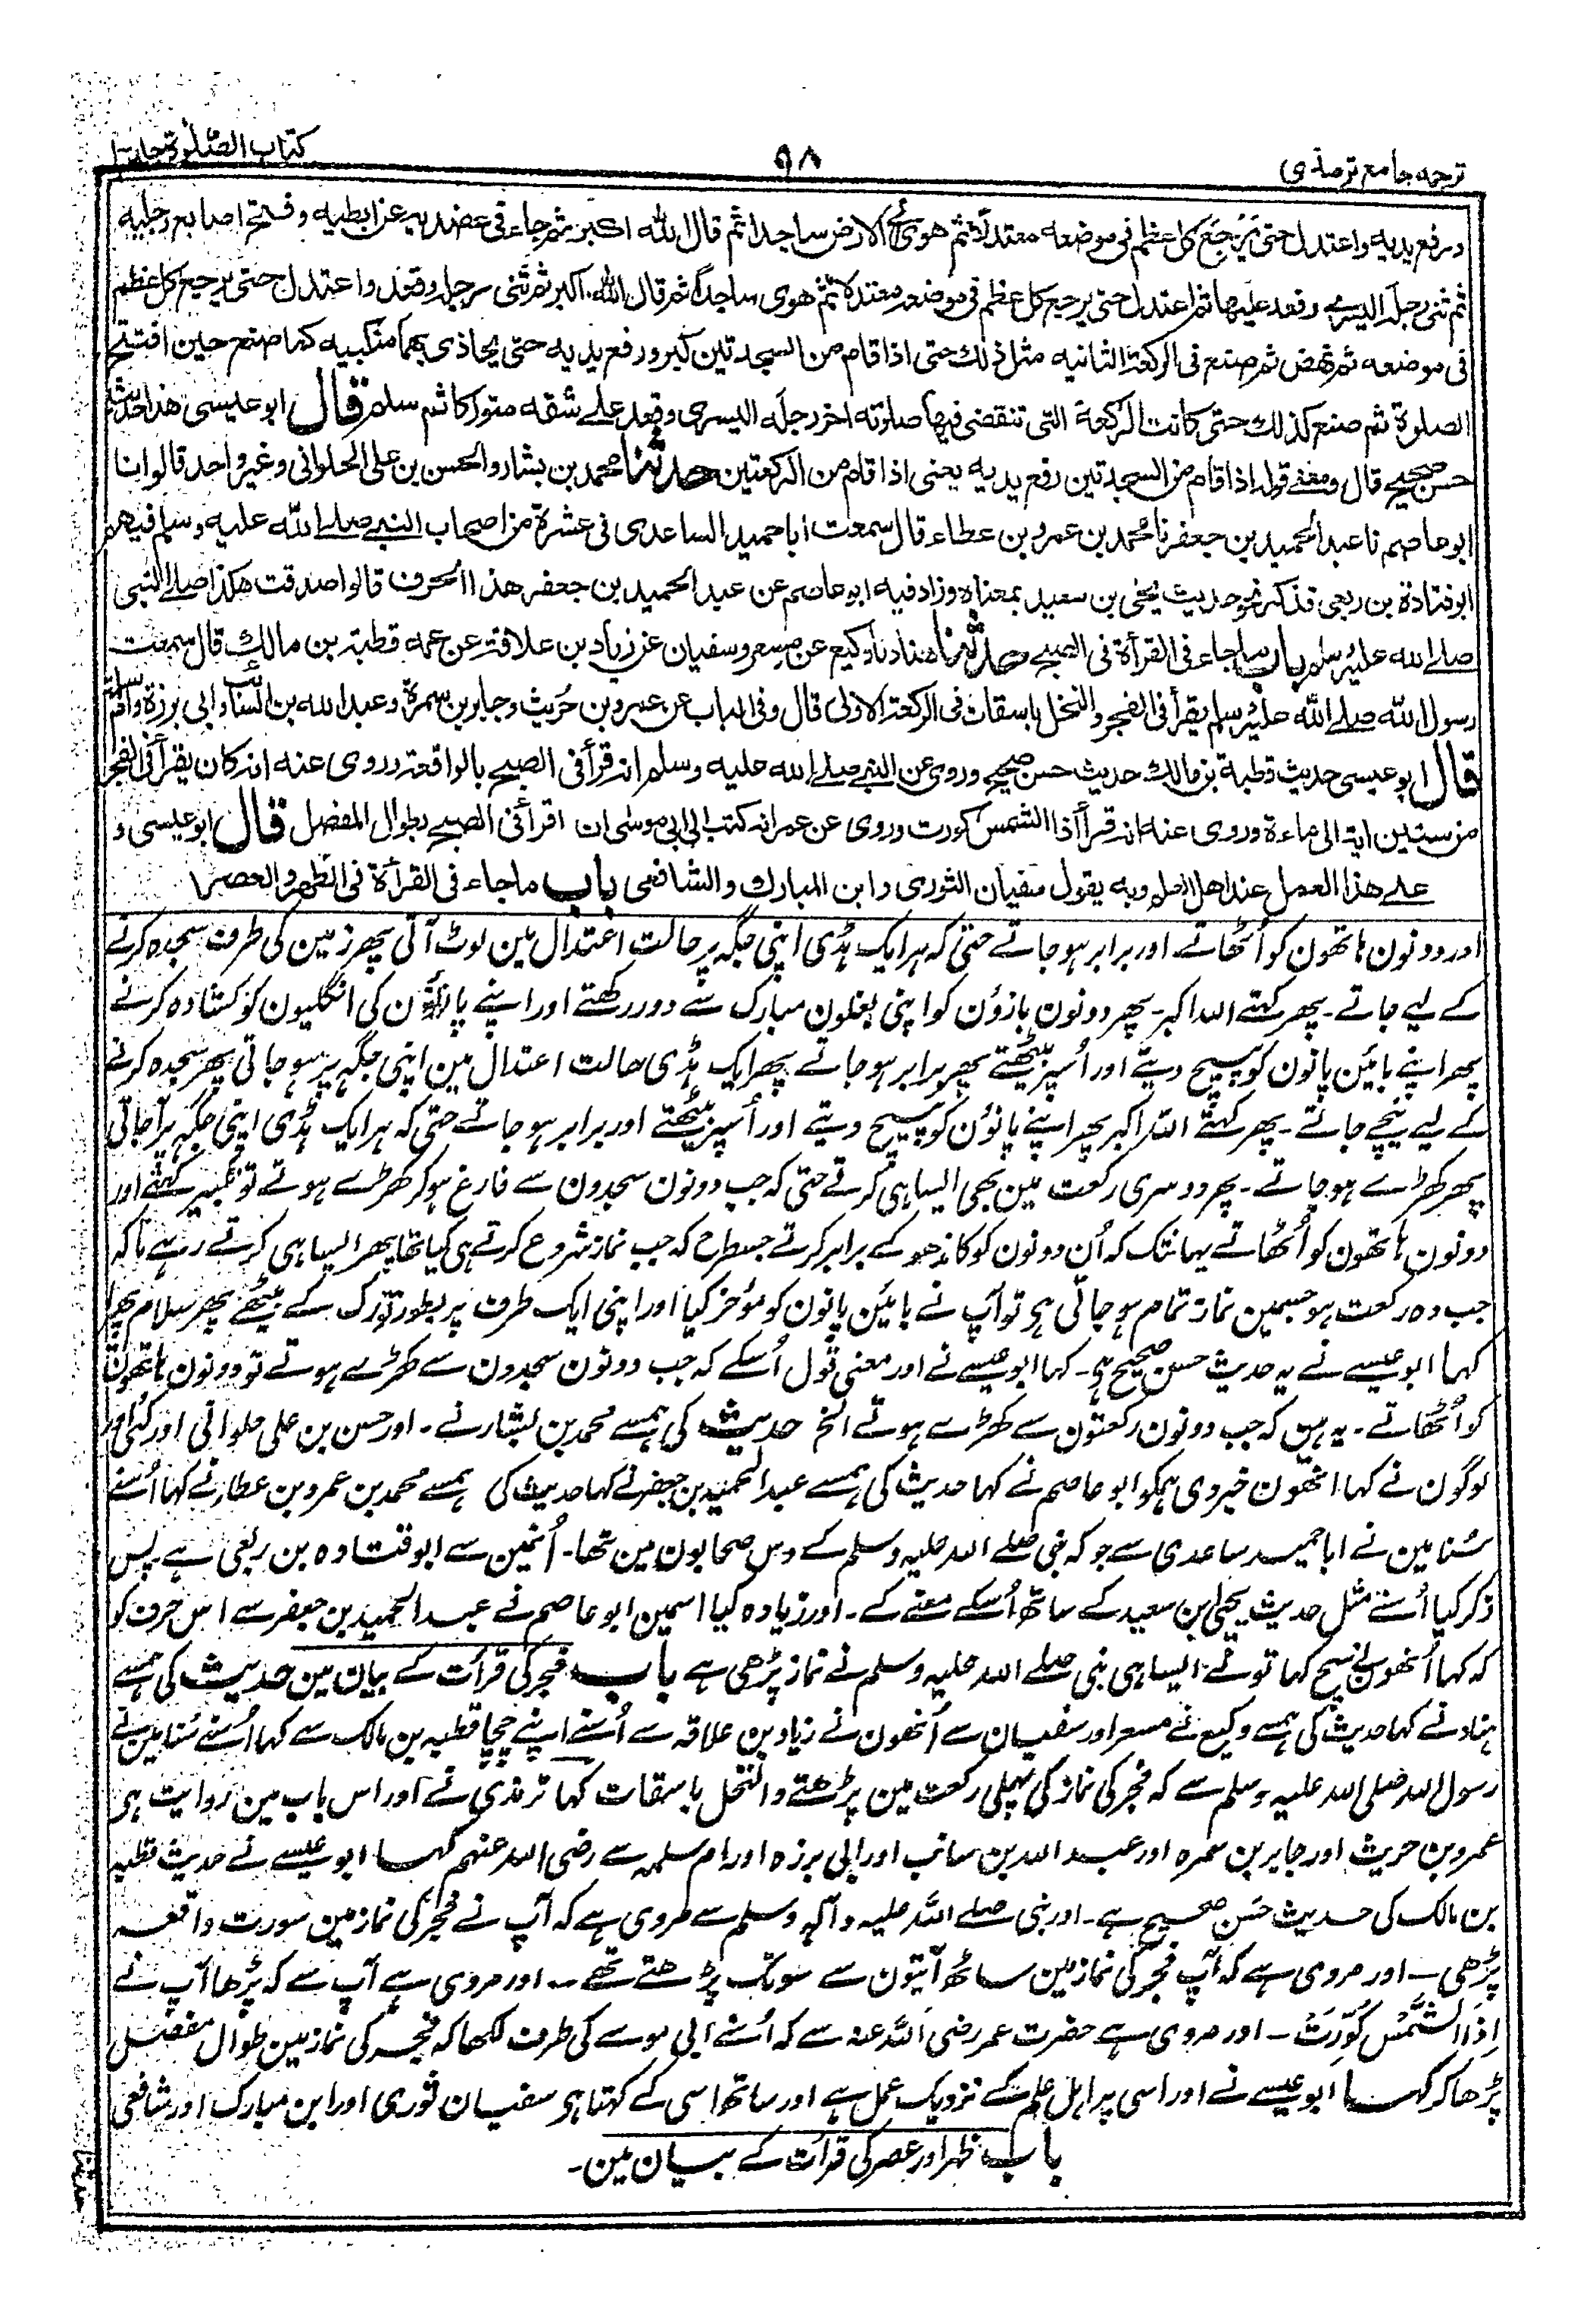 ترجمہ جامع ترمذی
۹۸
کتاب الصلوٰۃ جلد ۱
ورفع یدیه واعتدل حتی یرجع کل عظم فی موضعه معتدلا ثم هوی الی الارض ساجدا ثم قال الله اکبر ثم جافی عضدیه عن ابطیه وفتح اصابع رجلیه
ثم ثنی رجله الیسری وقعد علیها ثم اعتدل حتی یرجع کل عظم فی موضعه معتدلا ثم هوی ساجدا ثم قال الله اکبر ثم ثنی رجله وقعد واعتدل حتی یرجع کل عظم
فی موضعه ثم نهض ثم صنع فی الرکعة الثانیه مثل ذلك حتی اذا قام من السجدتین کبر ورفع یدیه حتی یحاذی بهما منکبیه کما صنع حین افتتح
الصلوة ثم صنع کذلك حتی کانت الرکعة التی تنقضی فیها صلوته اخر رجله الیسری وقعد علے شقه متورکا ثم سلم قال ابو عیسی هذا حدیث
حسن صحیح قال ومعنے قوله اذا قام من السجدتین رفع یدیه یعنی اذا قام من الرکعتین حدثنا محمد بن بشار والحسن بن علی الحلوانی وغیر واحد قالوا انا
ابو عاصم نا عبد الحمید بن جعفر نا محمد بن عمرو بن عطاء قال سمعت أبا حمید الساعدی فی عشرة من اصحاب النبی صلے الله علیه وسلم فیهم
ابو قتادة بن ربعی فذکر نحو حدیث یحیی بن سعید بمعناه وزاد فیه ابو عاصم عن عبد الحمید بن جعفر هذا الحرف قالوا صدقت هکذا صلے النبی
صلے الله علیه وسلم باب ما جاء فی القرأة فی الصبح حدثنا هناد نا وکیع عن مسعر وسفیان عن زیاد بن علاقة عن عمه قطبة بن مالك قال سمعت
رسول الله صلے الله علیه وسلم یقرأ فی الفجر والنخل باسقات فی الرکعة الاولی قال وفی الباب عن عمرو بن حُریث وجابر بن سمرة وعبد الله بن السائب وابی برزة وام سلمة
قال ابو عیسی حدیث قطبة بن مالك حدیث حسن صحیح وروی عن النبی صلے الله علیه وسلم انه قرأ فی الصبح بالواقعة وروی عنه انه کان یقرأ فی الفجر
من ستین ایة الی ماءة وروی عنه انه قرأ اذا الشمس کورت وروی عن عمر انه کتب الی ابی موسی ان اقرأ فی الصبح بطوال المفصل قال ابو عیسی و
علے هذا العمل عند اهل العلم وبه یقول سفیان الثوری وابن المبارك والشافعی باب ما جاء فی القرأة فی الظهر والعصر
اور دونون ہاتھون کو اُٹھاتے اور برابر ہو جاتے حتیٰ کہ ہر ایک ہڈی اپنی جگہ پر حالت اعتدال مین لوٹ آتی پھر زمین کی طرف سجدہ کرنے
کے لیے جاتے۔ پھر کہتے اللہ اکبر۔ پھر دونون بازوٗن کو اپنی بغلون مبارک سے دور رکھتے اور اپنے پاؤن کی انگلیون کو کشادہ کرتے
پھر اپنے بائین پانون کو پیچ دیتے اور اُسپر بیٹھتے پھر برابر ہو جاتے پھر ایک ہڈی حالت اعتدال مین اپنی جگہ پر ہو جاتی پھر سجدہ کرنے
کے لیے نیچے جاتے۔ پھر کہتے اللہ اکبر پھر اپنے پانوٗن کو پیچ دیتے اور اُسپر بیٹھتے اور برابر ہو جاتے حتی کہ ہر ایک ہڈی اپنی جگہ پر آجاتی
پھر کھڑے ہو جاتے۔ پھر دوسری رکعت مین بھی ایسا ہی کرتے حتی کہ جب دونون سجدون سے فارغ ہو کر کھڑے ہوتے تو تکبیر کہتے اور
دونون ہاتھون کو اُٹھاتے یہانتک کہ اُن دونون کو کاندھو کے برابر کرتے جسطرح کہ جب نماز شروع کرتے ہی کیا تھا پھر ایسا ہی کرتے رہے تاکہ
جب وہ رکعت ہو جسمین نماز تمام ہو جاتی ہی تو آپ نے بائین پانون کو موٗخر کیا اور اپنی ایک طرف پر بطور تورک کے بیٹھے پھر سلام پھیرا
کہا ابو عیسے نے یہ حدیث حسن صحیح ہی۔ کہا ابو عیسے نے اور معنی قول اُسکے کہ جب دونون سجدون سے کھڑے ہوتے تو دونون ہاتھون
کو اُٹھاتے۔ یہ ہین کہ جب دونون رکعتون سے کھڑے ہوتے الخ حدیث کی ہمسے محمد بن بشار نے۔ اور حسن بن علی حلوانی اور کئی اور
لوگون نے کہا انھون خبر دی ہمکو ابو عاصم نے کہا حدیث کی ہمسے عبد الحمید بن جعفر نے کہا حدیث کی ہمسے محمد بن عمرو بن عطار نے کہا اُسنے
سُنا مین نے ابا حمید ساعدی سے جو کہ نبی صلے اللہ علیہ وسلم کے دس صحابون مین تھا۔ اُنمین سے ابو قتادہ بن ربعی ہے پس
ذکر کیا اُسنے مثل حدیث یحیٰی بن سعید کے ساتھ اُسکے معنے کے۔ اور زیادہ کیا اسمین ابو عاصم نے عبد الحمید بن جعفر سے اس حرف کو
کہ کہا اُنھون نے سچ کہا تو نے ایسا ہی نبی صلے اللہ علیہ وسلم نے نماز پڑھی ہے باب فجر کی قرأت کے بیان مین حدیث کی ہمسے
ہناد نے کہا حدیث کی ہمسے وکیع نے مسعر اور سفیان سے اُنھون نے زیاد بن علاقہ سے اُسنے اپنے چچا قطبہ بن مالک سے کہا اُسنے سُنا مین نے
رسول اللہ صلی اللہ علیہ وسلم سے کہ فجر کی نماز کی پہلی رکعت مین پڑھتے والنخل باسقات کہا ترمذی نے اور اس باب مین روایت ہی
عمرو بن حریث اور جابر بن سمرہ اور عبد اللہ بن سائب اور ابی برزہ اور ام سلمہ سے رضی اللہ عنہم کہا ابو عیسے نے حدیث قطبہ
بن مالک کی حدیث حَسن صحیح ہے۔ اور نبی صلے اللہ علیہ وآلہ وسلم سے مروی ہے کہ آپ نے فجر کی نماز مین سورت واقعہ
پڑھی۔ اور مروی ہے کہ آپ فجر کی نماز مین ساٹھ آیتون سے سو تک پڑھتے تھے۔ اور مروی ہے آپ سے کہ پڑھا آپ نے
اِذَا الشَّمْسُ کُوِّرَتْ۔ اور مروی ہے حضرت عمر رضی اللہ عنہ سے کہ اُسنے ابی موسے کی طرف لکھا کہ فجر کی نماز مین طوال مفصّل
پڑھا کر کہا ابو عیسے نے اور اسی پر اہل علم کے نزدیک عمل ہے اور ساتھ اسی کے کہتا ہی سفیان ثوری اور ابن مبارک اور شافعی
باب ظہر اور عصر کی قرأت کے بیان مین۔